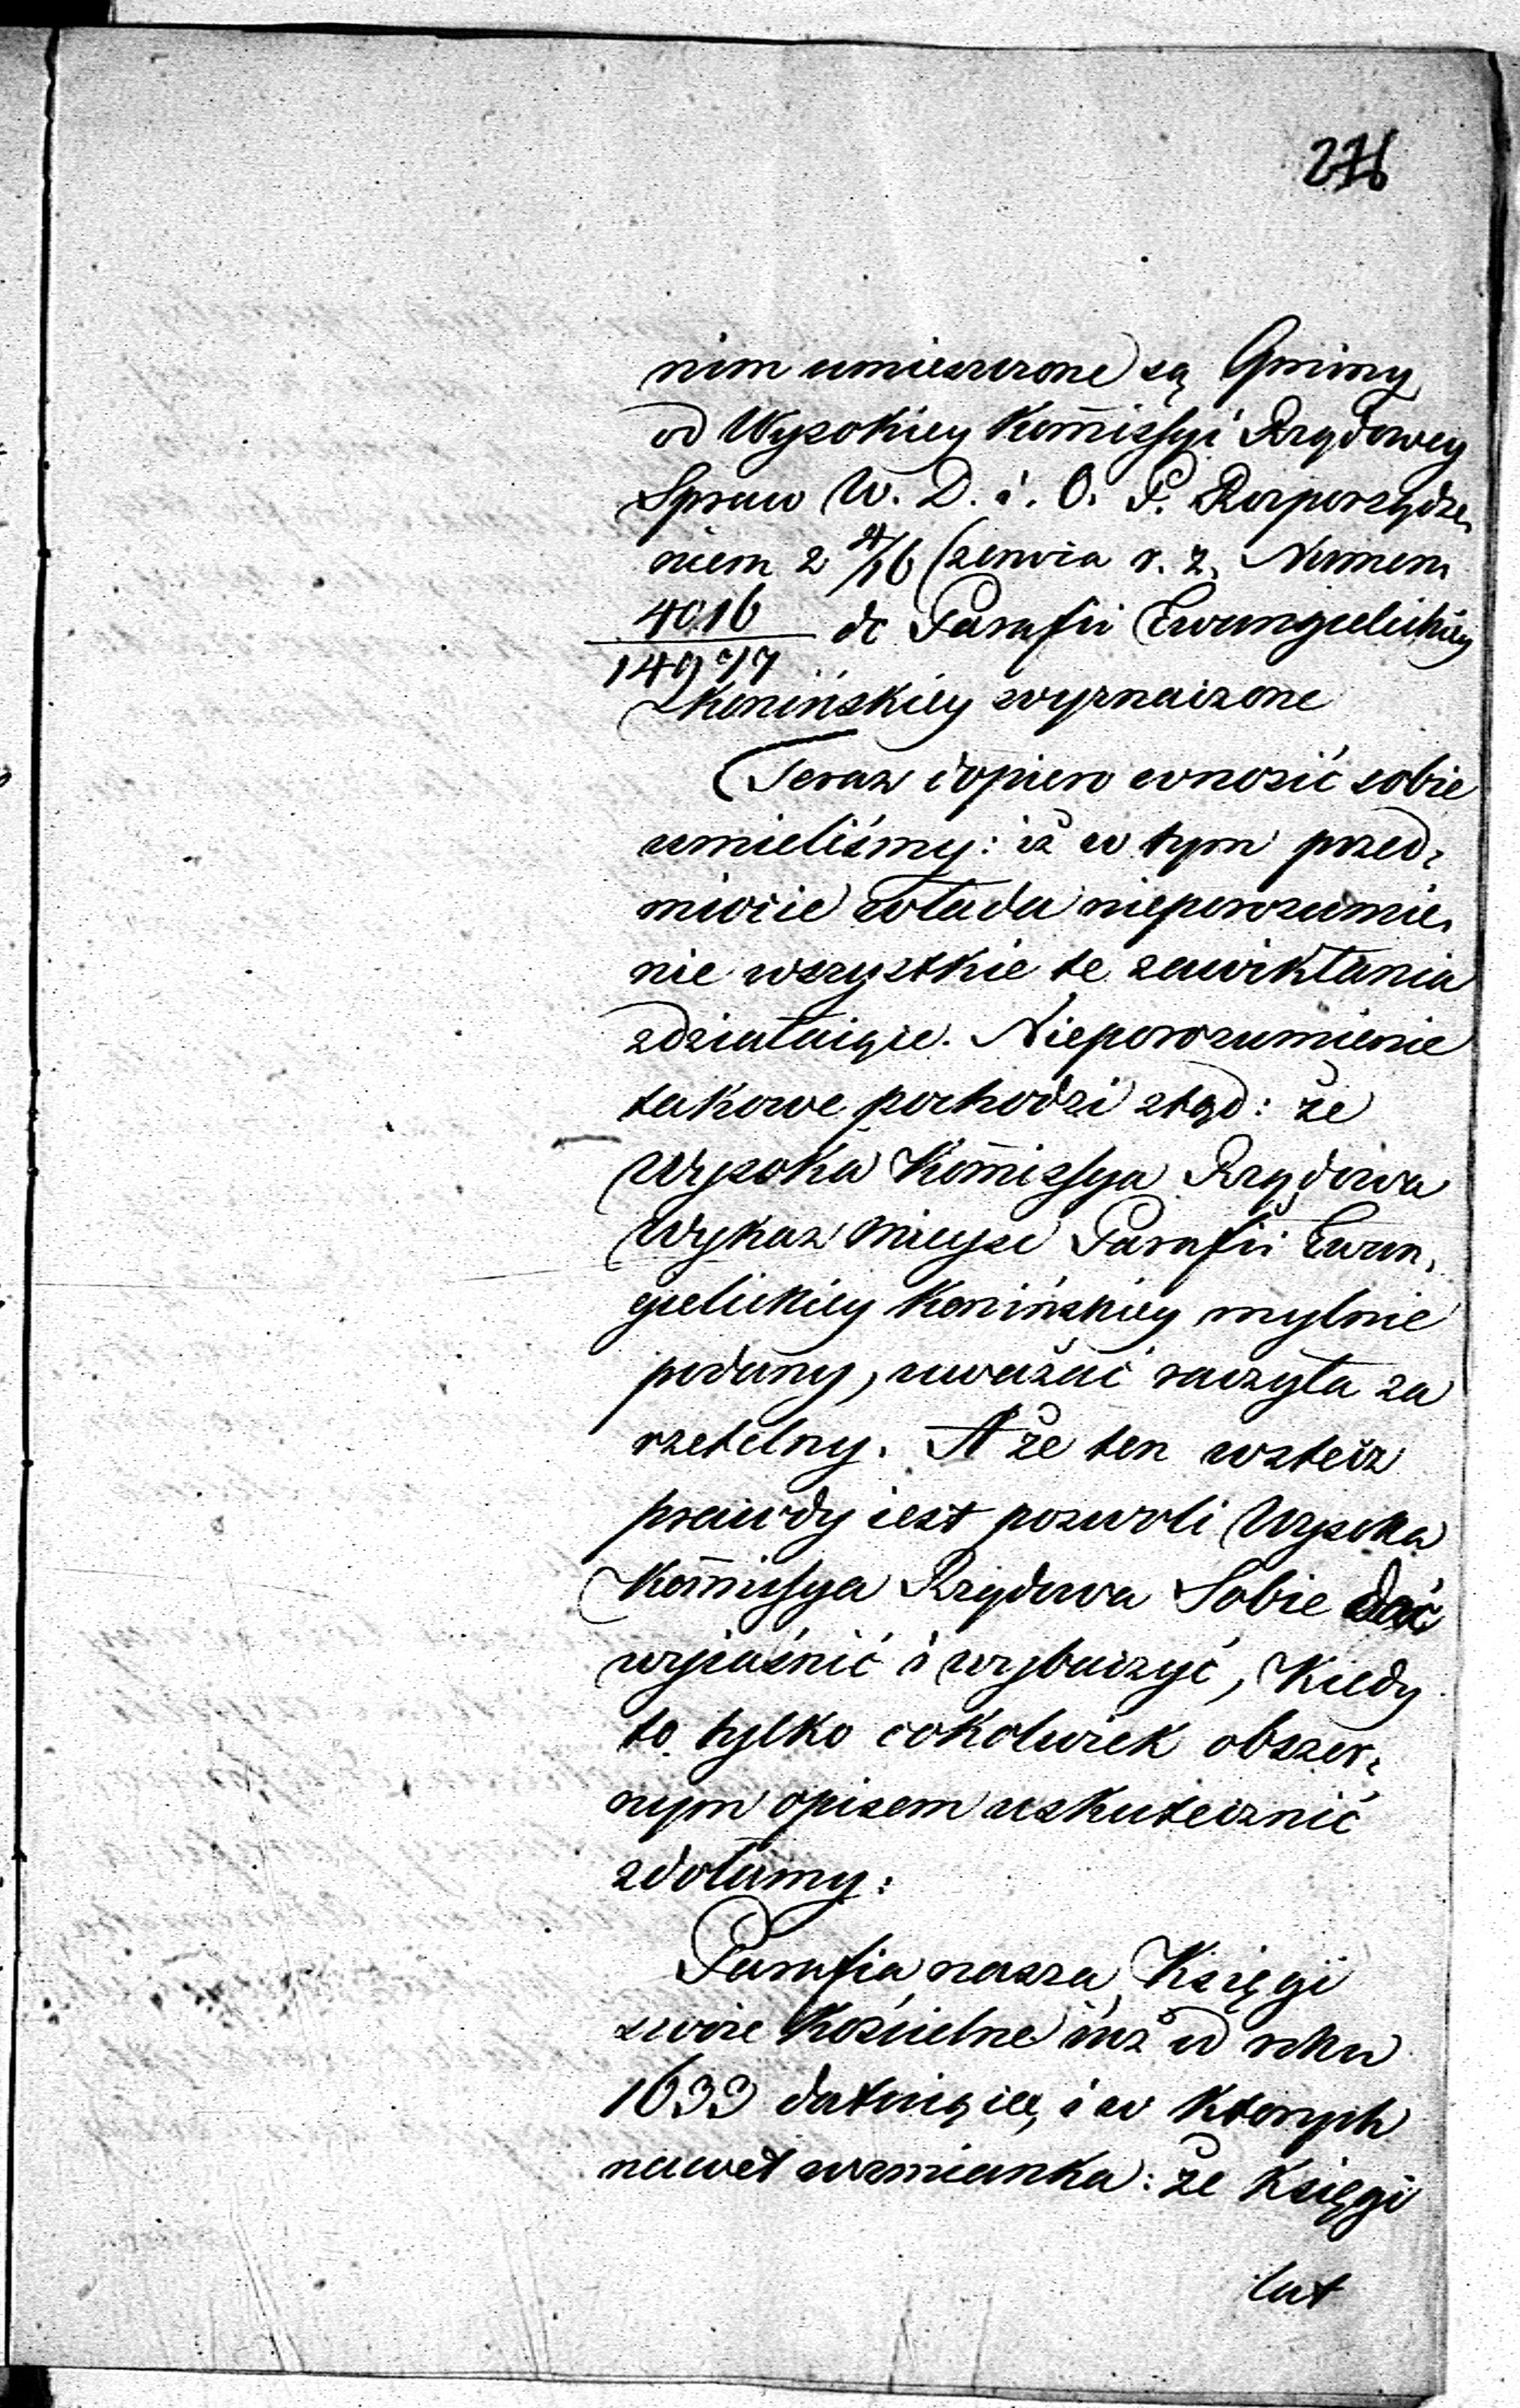 276
nim umieszczone są Gminy
od Wysokiey Kom̄issyi Rządowey
Spraw W. D. i. O. P. Rozporządze,
niem z Czerwca r. z. Numem
4016 do Parafii Ewangelickiéy
14977
Konińskiey wyznaczone
Teraz dopiero wnosić sobie
umieliśmy: iż w tym przed,
miocie włada nieporozumie,
nie wszystkie te zawikłania
zdziałaiące. Nieporozumienie
takowe pochodzi ztąd: że
Wysoka Kom̄issya Rządowa
Wykaz mieysc Parafii Ewan,
gelickiey Konińskiey mylnie
podany, uważać raczyła za
rzetelny. A że ten wstecz
prawdy iest pozwoli Wysoka
Kom̄issya Rządowa Sobie dać
wyiaśnić i wybaczyć, Kiedy
to tylko cokolwiek obszer,
nym opisem uskutecznić
zdołamy:
Parafia nasza, Księgi
swoie Kościelne iuż od roku
1633 datuiące, i w których
nawet wzmianka: że Księgi
lat